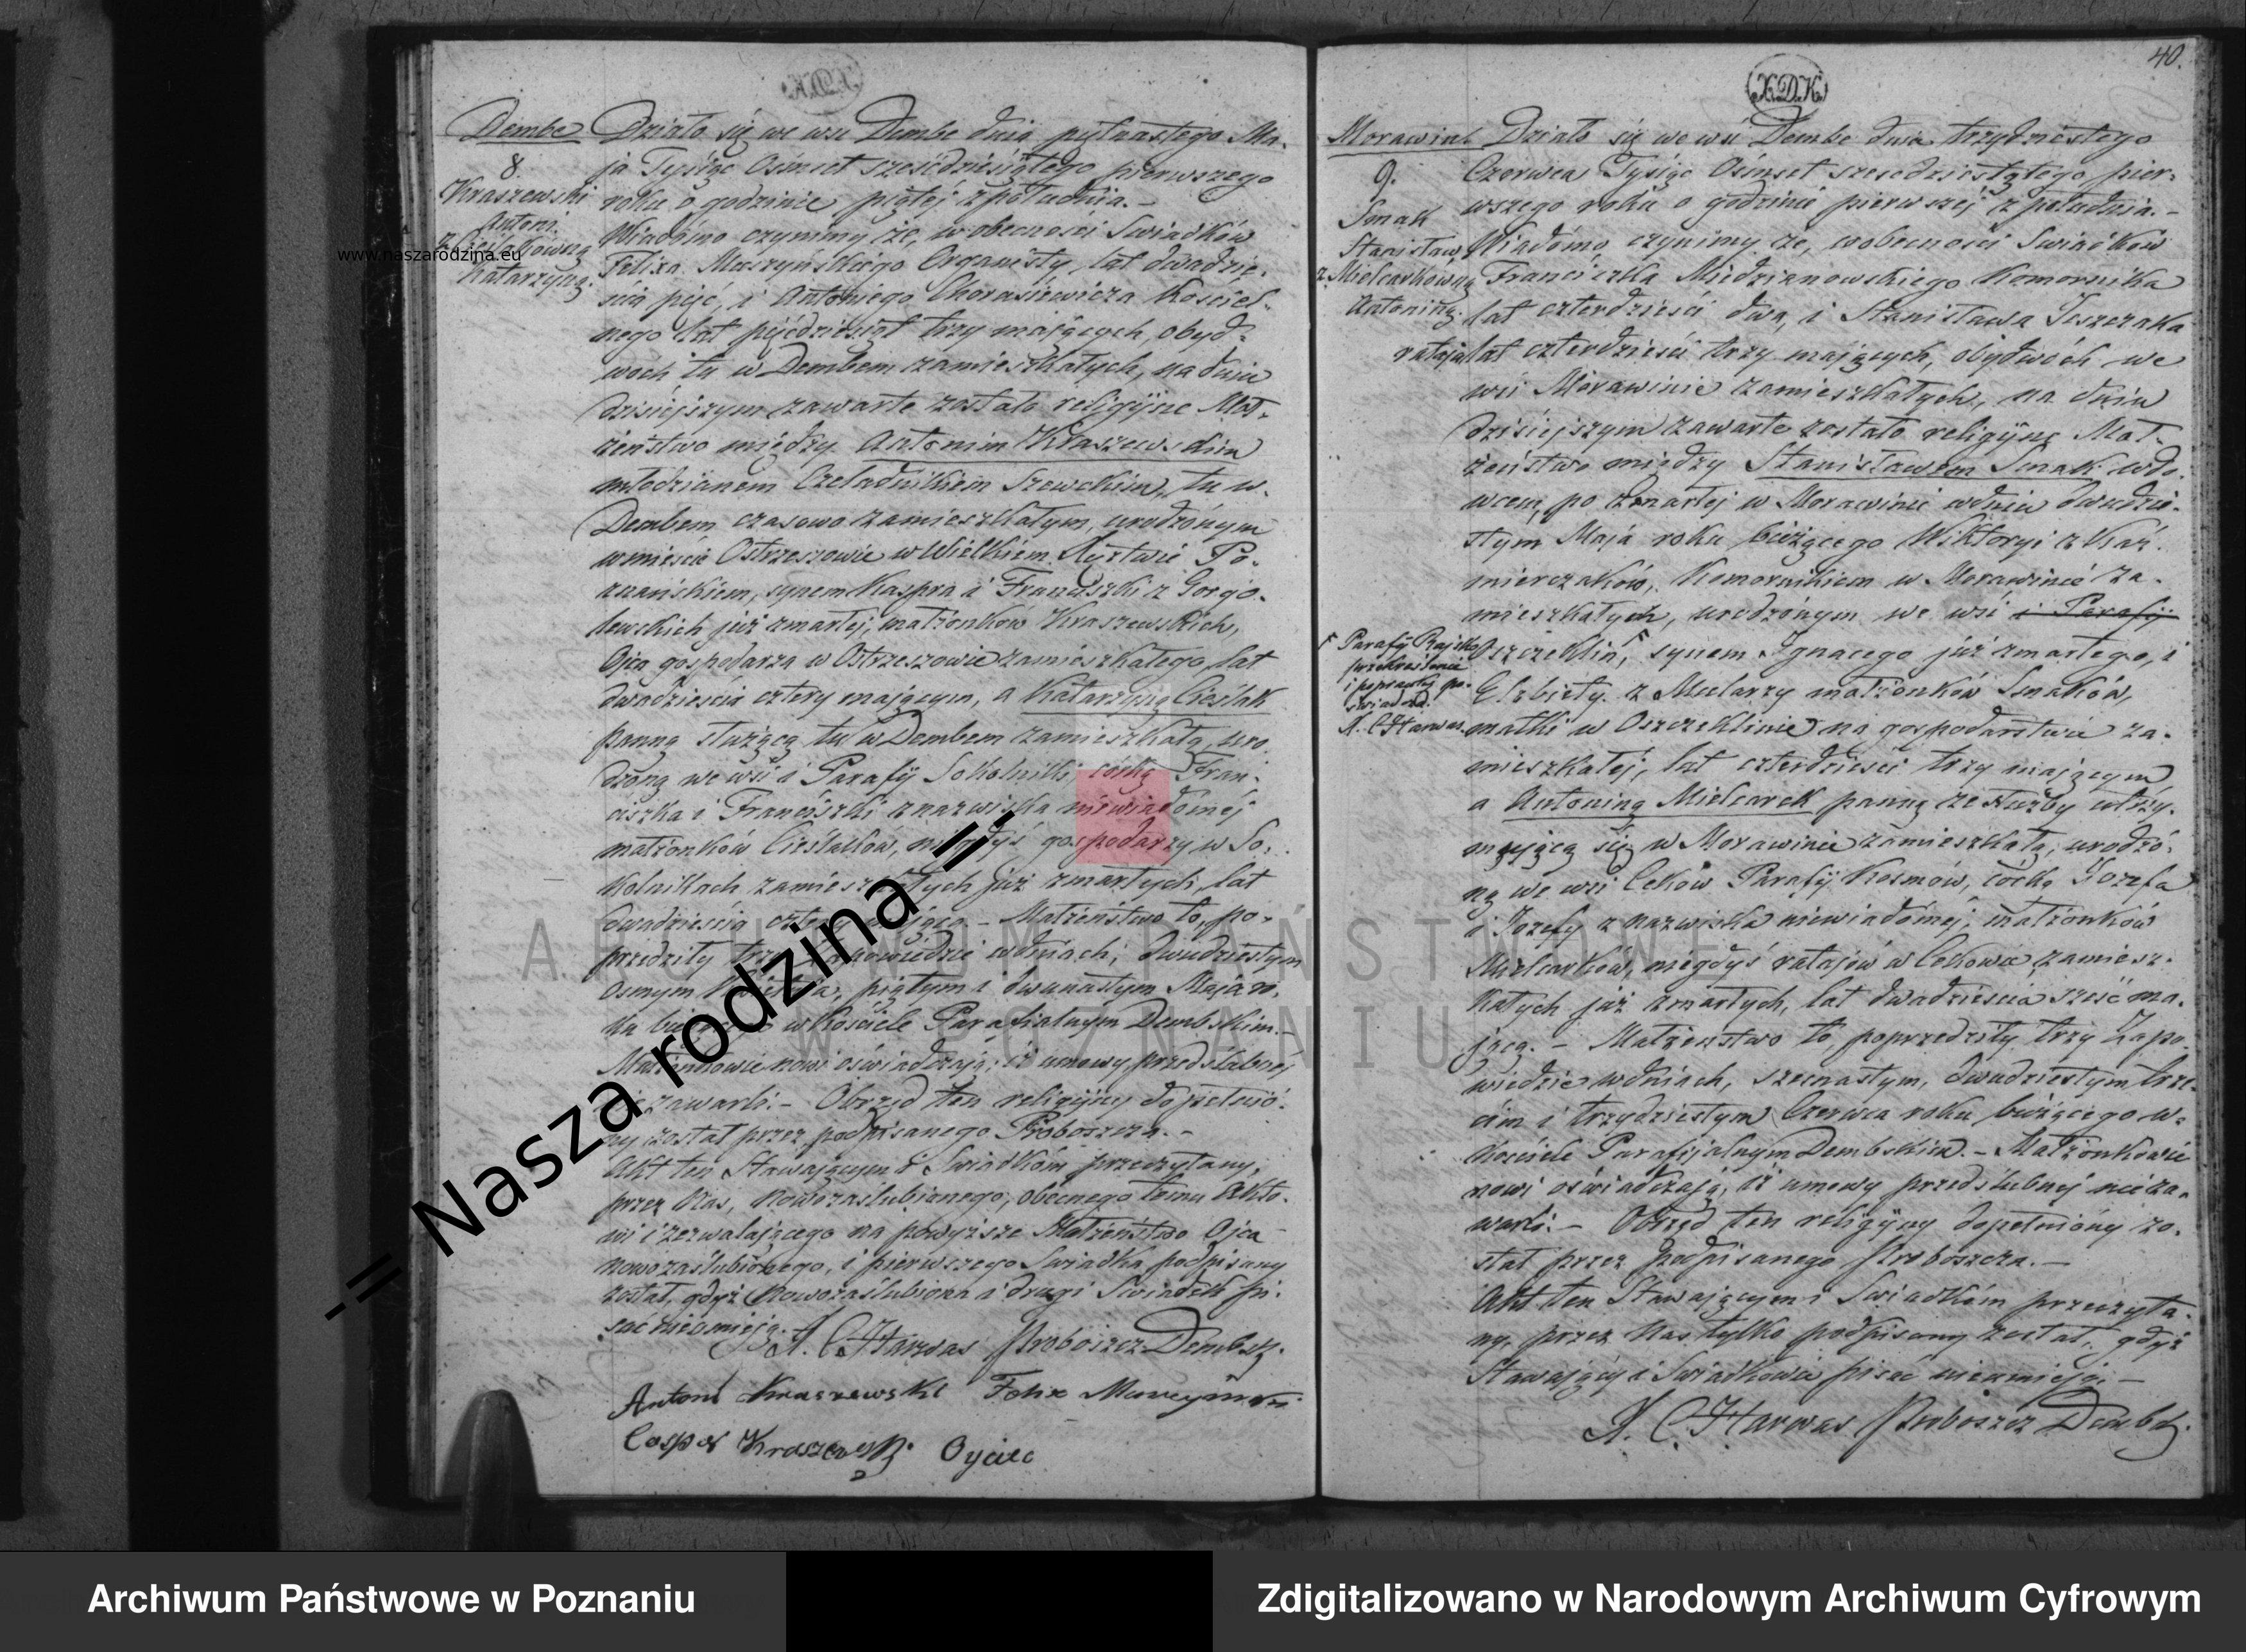 40.
X.D.K
Dembe
8.
Kraszewski
Antoni.
z Cieślakówną
Katarzyną.
www.naszarodzina.eu
Działo się we wsi Dembe dnia piętnastego Ma-
ja Tysiąc Ośmset sześćdziesiątego pierwszego
roku o godzinie piątej z południa. –
Wiadomo czynimy że, w obecności Świadków
Felixa Muszyńskiego Organisty, lat dwadzie-
ścia pięć, i Antoniego Chorasiewicza Kościel-
nego lat pięćdziesiąt trzy mających, obyd-
woch tu w Dembem zamieszkałych, na dniu
dzisiejszym zawarte zostało religijne Mał-
żeństwo między Antonim Kraszewskim
młodzianem Czeladnikiem Szewckim, tu w-
Dembem czasowo zamieszkałym, urodzonym
w mieście Ostrzeszowie w Wielkiem Xięstwie Po-
znańskiem, synem Kaspra i Franciszki z Gorgo-
lewskich już zmarłej, małżonków Kraszewskich,
Ojca gospodarza w Ostrzeszowie zamieszkałego, lat
dwadzieścia cztery mającym, a Katarzyną Cieślak
panną służącą tu w Dembem zamieszkałą, uro-
dzoną we wsi i Parafii Sokolniki córką Fran-
ciszka i Franciszki z nazwiska niewiadomej
małżonków Cieślaków, niegdyś gospodarzy w So-
kolnikach zamieszkałych już zmartych, lat
dwadzieścia cztery mającą. – Małżeństwo to, po-
przedziły trzy Zapowiedzie w dniach, dwudziestym
osmym Kwietnia, piątym i dwunastym Maja ro-
ku bieżącego w Kościele Parafialnym Dembskim. –
Małżonkowie nowi oświadczają, iż umowy przedślubnej
nie zawarli. – Obrzęd ten religijny dopełnio-
ny został przez podpisanego Proboszcza. –
Akt ten Stawającym i Świadkóm przeczytany,
przez Nas, Nowozaślubionego, obecnego temu Akto-
wi i zezwalającego na powyższe Małżeństwo Ojca
nowozaślubionego, i pierwszego Świadka podpisany
został, gdyż Nowozaślubiona i drugi Świadek pi-
sać nieumieją.
X. C. Harwas Proboszcz Dembsk.
Antoni Kraszewski Felix Muszyński
Casper Kraszewski Oyciec
Morawin
9.
Smak
Stanisław
z Mielcarkówną
Antoniną.
Działo się we wsi Dembe dnia trzydziestego
Czerwca Tysiąc Ośmset sześćdziesiątego pier-
wszego roku o godzinie pierwszej z południa. –
Wiadomo czynimy że, w obecności Świadków
Franciszka Miedzianowskiego Komornika
lat czterdzieści dwa, i Stanisława Jeszczaka
rataja lat czterdzieści trzy mających, obydwóch we
wsi Morawinie zamieszkałych, na dniu
dzisiejszym zawarte zostało religijne Mał-
żeństwo między Stanisławem Smak wdo-
wcem, po zmarłej w Morawinie w dniu dwudzie-
stym Maja roku bieżącego Wiktoryi z Kaź-
mierczaków, Komornikiem w Morawinie za-
mieszkałych, urodzonym we wsi i Parafii
Oszczeklin, synem Ignacego już zmarłego, i
Parafii Rajsko
przekreślenie
i poprawkę po-
świadcza.
X. C. Harwas.
Elżbiety z Mularzy małżonków Smaków,
matki w Oszczeklinie na gospodarstwie za-
mieszkałej, lat czterdzieści trzy mającym
a Antoniną Mielcarek panną ze służby utrzy-
mującą się w Morawinie zamieszkałą, urodzo-
ną we wsi Ceków Parafii Kosmów, córką Józefa
i Józefy z nazwiska niewiadomej, małżonków
Mielcarków, niegdyś ratajów w Cekowie zamiesz-
kałych już zmarłych, lat dwadzieścia sześć ma-
jącą. – Małżeństwo to poprzedziły trzy Zapo-
wiedzie w dniach, szesnastym, dwudziestym trze-
cim i trzydziestym Czerwca roku bieżącego w-
Kościele Parafijalnym Dembskim. – Małżonkowie
nowi oświadczają, iż umowy przedślubnej nieza-
warli. – Obrzęd ten religijny dopełniony zo-
stał przez podpisanego Proboszcza. –
Akt ten Stawającym i Świadkóm przeczyta-
ny, przez Nas tylko podpisany został, gdyż
Stawający i Świadkowie pisać nieumieją. –
X. C. Harwas Proboszcz Dembsk.
ARCHIWUM PAŃSTWOWE
W POZNANIU
-= Nasza rodzina =-
Archiwum Państwowe w Poznaniu
Zdigitalizowano w Narodowym Archiwum Cyfrowym